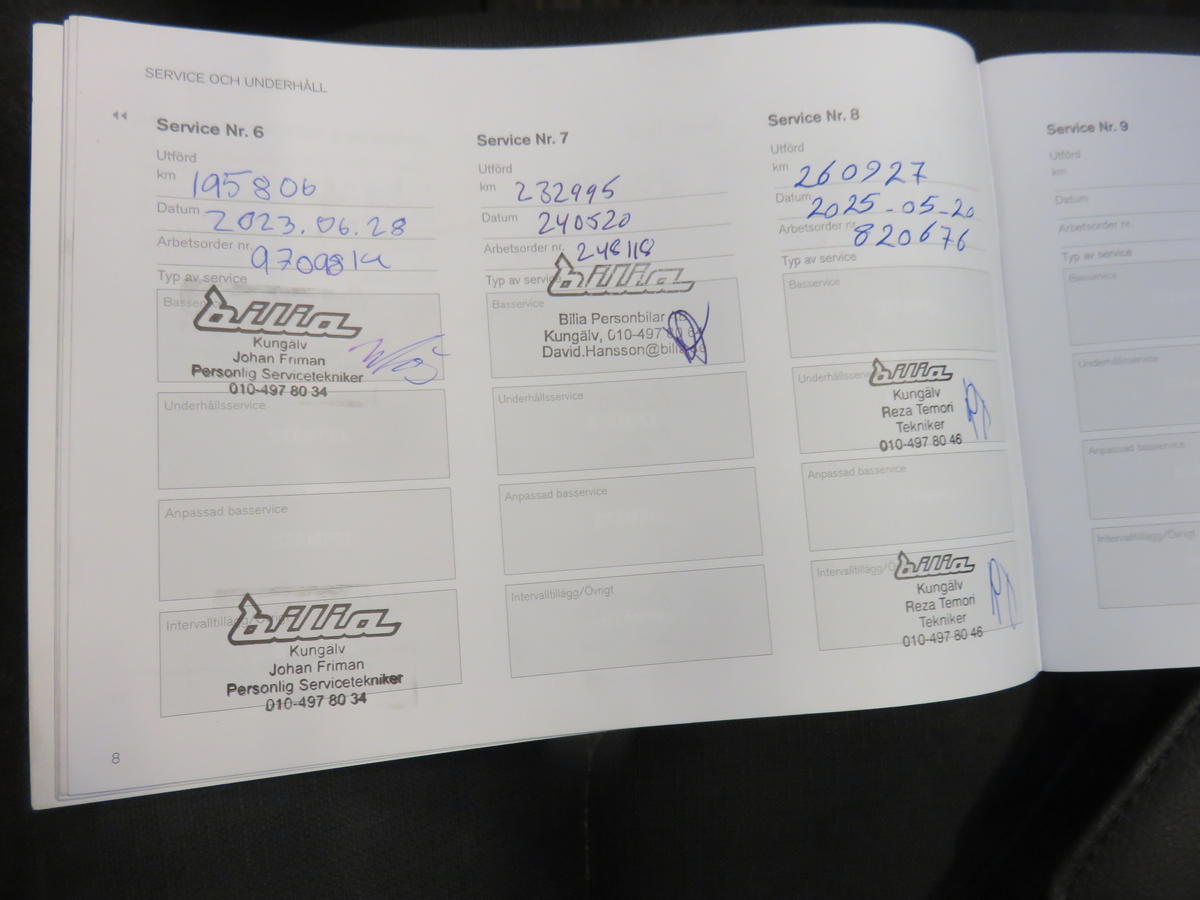 SERVICE OCH UNDERHÅLL
Service Nr. 6
Utförd
km 195806
Datum 2023.06.28
Arbetsorder nr.
Typ av service
Basservice
bilia
Kungälv
Johan Friman
Personlig Servicetekniker
010-497 80 34
Underhållsservice
Anpassad basservice
Intervalltillägg/Övrigt
bilia
Kungälv
Johan Friman
Personlig Servicetekniker
010-497 80 34
Service Nr. 7
Utförd
km 232995
Datum 240520
Arbetsorder nr. 248118
Typ av service
bilia
Basservice
Bilia Personbilar
Kungälv, 010-497 80
David.Hansson@bilia
Underhållsservice
Anpassad basservice
Intervalltillägg/Övrigt
Service Nr. 8
Utförd
km 260927
Datum 2025-05-20
Arbetsorder nr. 820676
Typ av service
Basservice
Underhållsservice
bilia
Kungälv
Reza Temori
Tekniker
010-497 80 46
Anpassad basservice
Intervalltillägg/Övrigt
bilia
Kungälv
Reza Temori
Tekniker
010-497 80 46
Service Nr. 9
Utförd
km
Datum
Arbetsorder nr.
Typ av service
Basservice
Underhållsservice
Anpassad basservice
Intervalltillägg/Övrigt
8